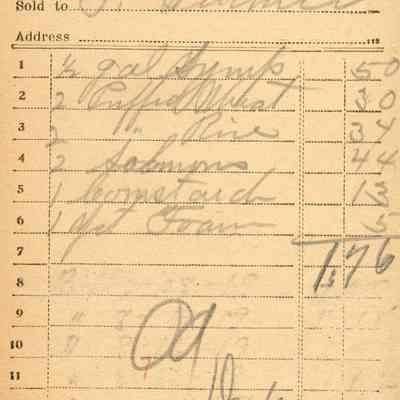 Sold to
Address
1 ½ gal Syrup 50
2 2 Puffed Wheat 30
3 2 " Rice 34
4 2 Salmons 44
5 1 Cornstarch 13
6 1 yst Foam 5
7 1.76
8
9
10
11